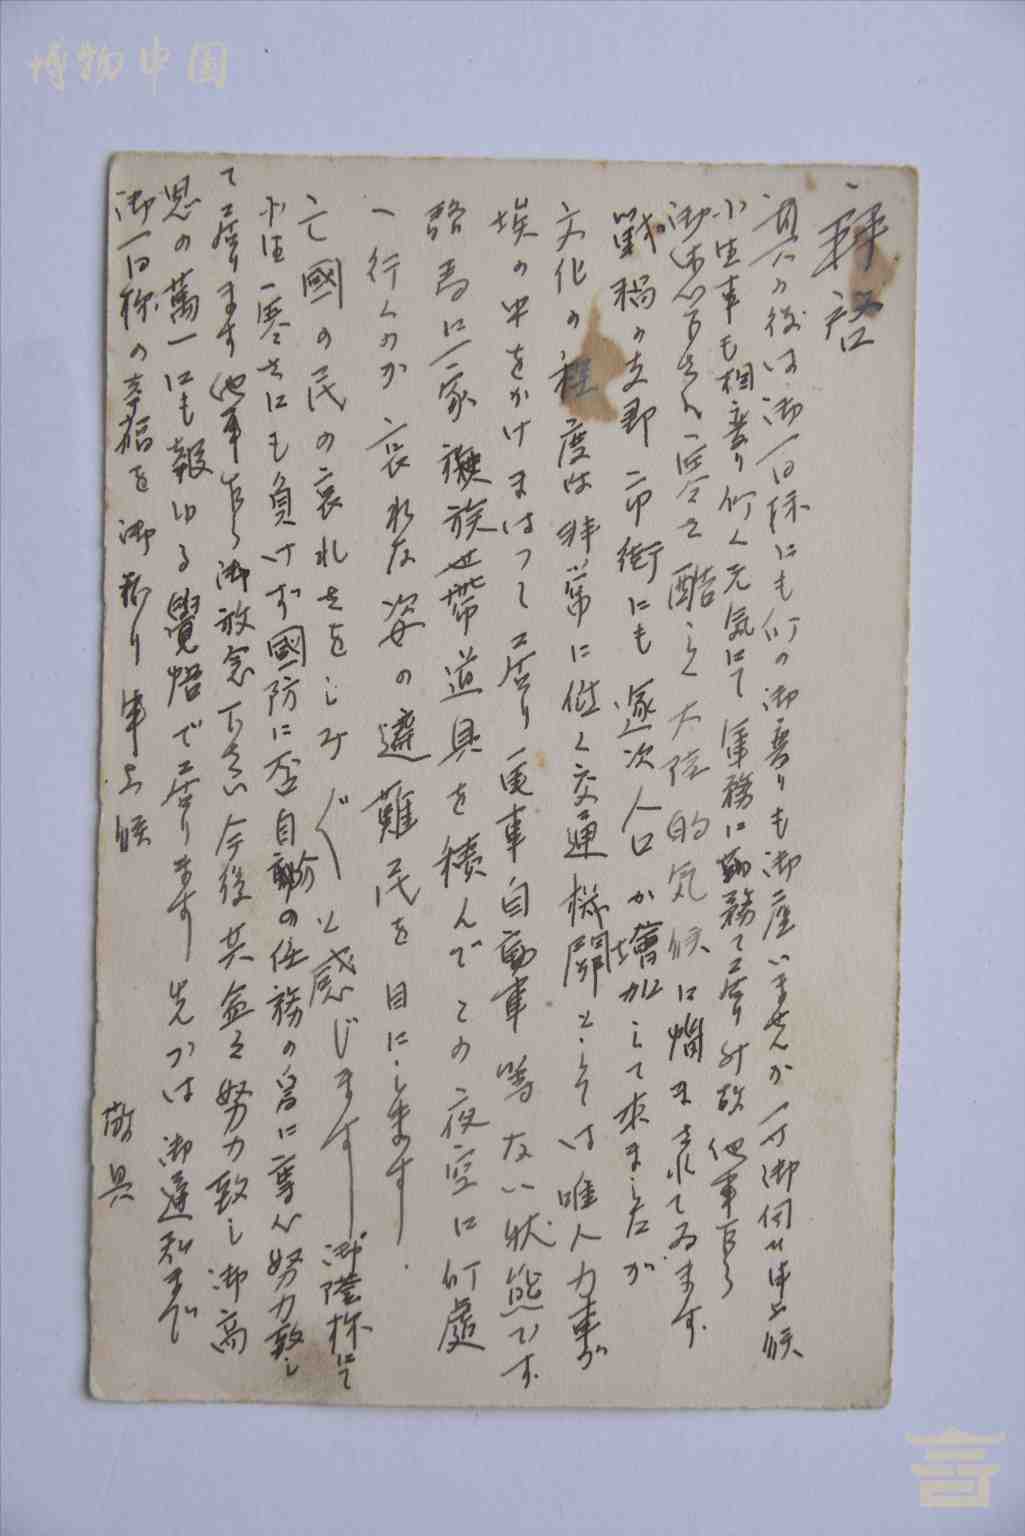 博物中国
拝啓
其の後は御一同様にも何の御変りも御座いませんか 一寸御伺ひ申上候
小生事も相変り何く元気にて軍務に勤務て居り升故他事乍ら
御休心下さい 寒さ酷しく大陸的気候に悩まされてゐます
戦禍の支那市街にも逐次人口が増加して来ましたが
文化の程度は非常に低く交通機関としては唯人力車が
埃の中をかけまはつて居り電車自動車等ない状態です
驢馬に一家族世帯道具を積んでこの夜空に何處
へ行くのか哀れな姿の避難民を目にします
亡國の民の哀れさをしみ〲と感じます 御蔭様にて
小生寒さにも負けず國防に 自動の任務の為に専心努力致し
て居ります他事乍ら御放念下さい 今後共益々努力致し御高
恩の萬一にも報ゆる覺悟で居ります 先づは御通知まで
御一同様の幸福を御祈り申上候
敬具
言